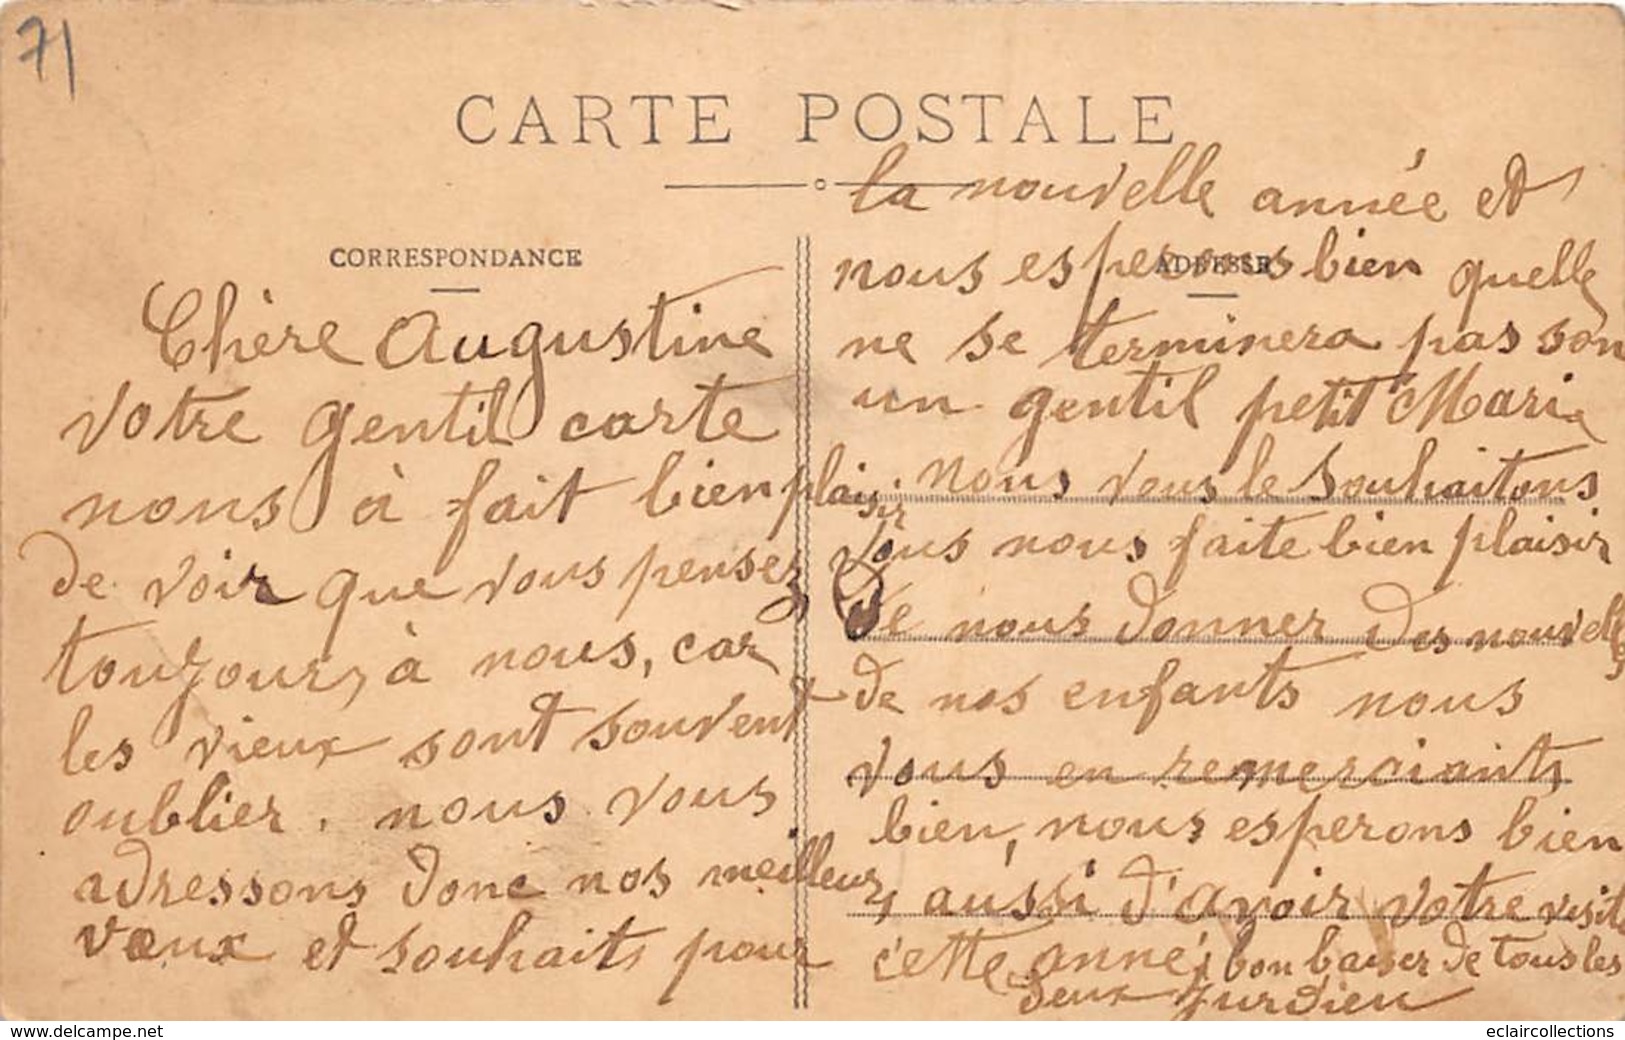 71
CARTE POSTALE
CORRESPONDANCE
Chère Augustine
votre gentil carte
nous à fait bien plaisir
de voir que vous pensez
toujours à nous, car
les vieux sont souvent
oublier. nous vous
adressons donc nos meilleurs
vœux et souhaits pour
ADRESSE
la nouvelle année et
nous esperons bien quelle
ne se terminera pas son
un gentil petit Mari
nous vous le souhaitons
vous nous faite bien plaisir
de nous donner des nouvelles
de nos enfants nous
vous en remerciants
bien, nous esperons bien
aussi d'avoir votre visite
cette année bon baiser de tous les
deux Jurdieu
www.delcampe.net
eclaircollections